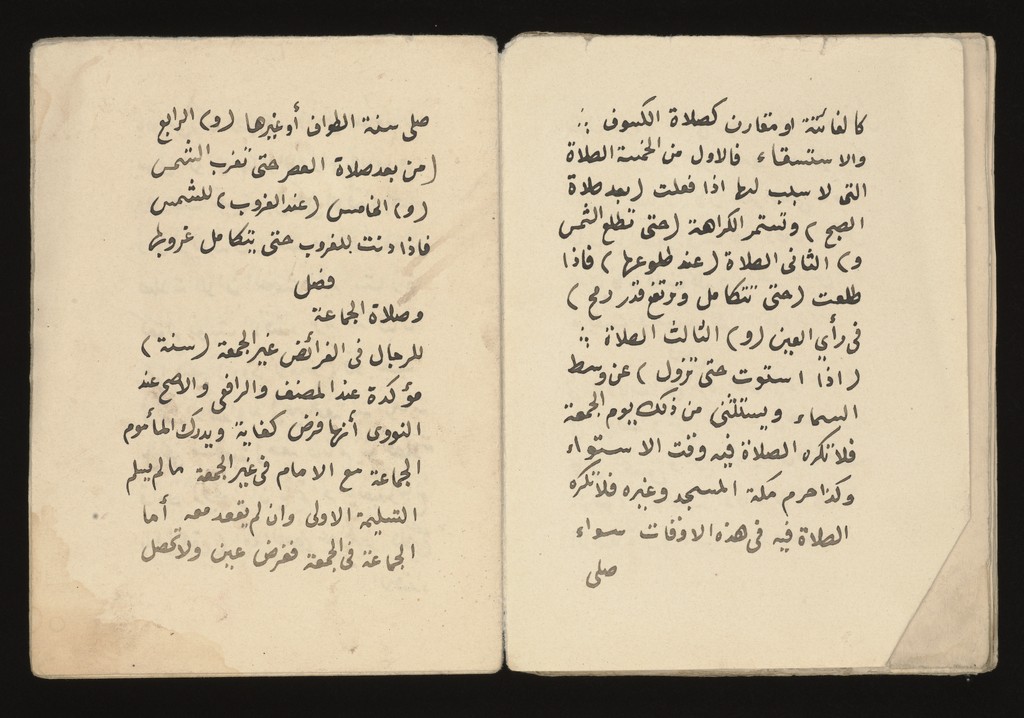 كالفائتة او مقارن كصلاة الكسوف
والاستسقاء فالاول من الخمسة الصلاة
التى لا سبب لها اذا فعلت (بعد صلاة
الصبح) وتستمر الكراهة (حتى تطلع الشمس
و) الثانى الصلاة (عند طلوعها) فاذا
طلعت (حتى تتكامل وترتفع قدر رمح)
فى رأي العين (و) الثالث الصلاة
(اذا استوت حتى تزول) عن وسط
السماء ويستثنى من ذلك يوم الجمعة
فلا تكره الصلاة فيه وقت الاستواء
وكذا حرم مكة المسجد وغيره فلا تكره
الصلاة فيه فى هذه الاوقات سواء
صلى
صلى سنة الطواف أو غيرها (و) الرابع
(من بعد صلاة العصر حتى تغرب الشمس
(و) الخامس (عند الغروب) للشمس
فاذا دنت للغروب حتى يتكامل غروبها
فصل
وصلاة الجماعة
للرجال فى الفرائض غير الجمعة (سنة)
مؤكدة عند المصنف والرافعى والاصح عند
النووى أنها فرض كفاية ويدرك المأموم
الجماعة مع الامام فى غير الجمعة ما لم يسلم
التسليمة الاولى وان لم يقعد معه أما
الجماعة فى الجمعة ففرض عين ولا تحصل